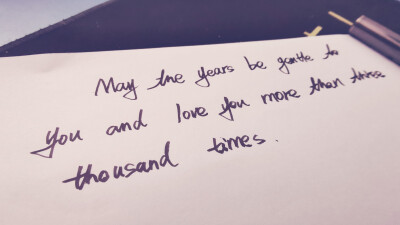 May the years be gentle to
you and love you more than three
thousand times.